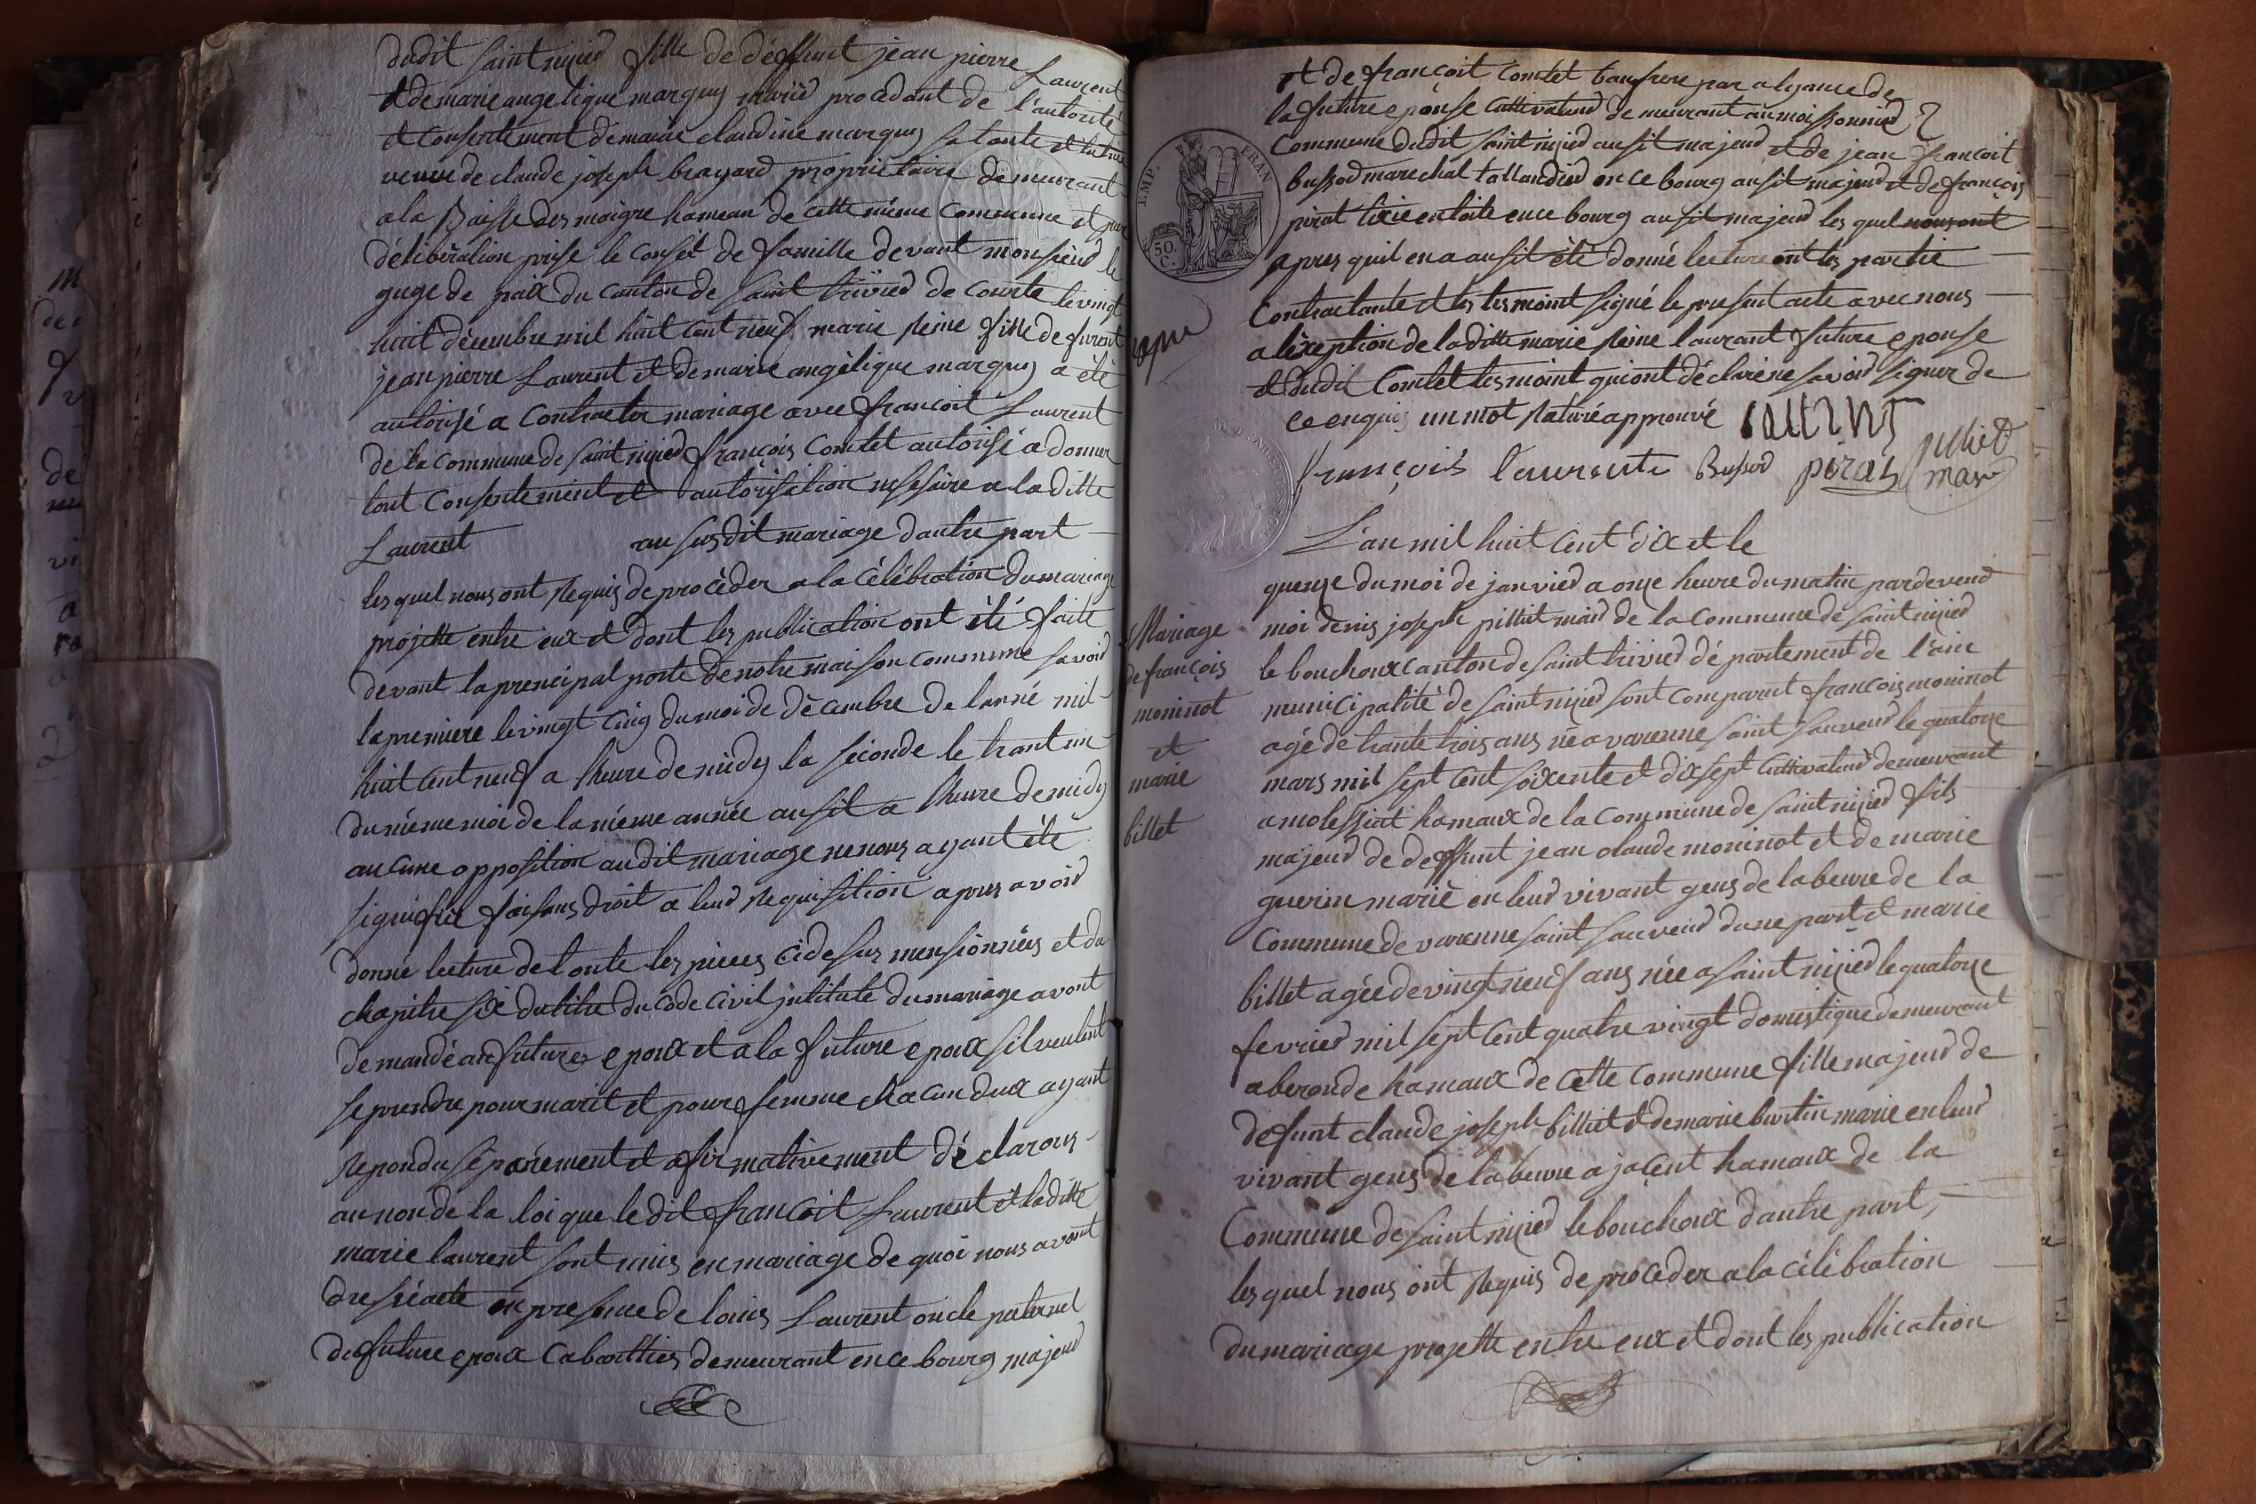 dudit saint nizied fille de déffunt jean pierre Laurent
et de marie angelique marguy marié procedant de l'autorité
et consentement de marie claudine marguy sa tante et tutrice
veuve de claude joseph brayard propriétaire demeurant
a la Baisse des moigre hameau de cette même commune et par
déliberation prise le conseil de famille devant monsieur le
guge de paix du canton de saint trivied de courte le vingt
huit décembre mil huit cent neuf marie Reine fille de furent
jean pierre Laurent et de marie angèlique marguy a été
autorisé a contracter mariage avec francoit Laurent
de la commune de saint nizied françois Comtet autorisé a donner
tout consentement et autorisation nesesaire a la ditte
Laurent au susdit mariage d'autre part
les quel nous ont Requis de procèder a la célébration du mariage
projetté entre eux et dont les publication ont été faite
devant la prencipal porte de notre maison commune savoir
la premiere le vingt cinq du moi de dècembre de lanné mil
huit cent neuf a lheure de midy la seconde le trant un
du méme moi de la méme année ausit a lheure de midy
aucune opposition audit mariage ne nous ayant été
signifié faisans droit a leur Requisition apres avoir
donné lecture de toute les pieces cidesus mensionnées et du
chapitre six du titre du code civil jntitulé du mariage avont
demandé au future epoux et a la future epoux sil veulent
se prendre pour marit et pour femme chacun deux ayant
Repondu séparément et afirmativement déclarons
au non de la loi que le dit francoit Laurent et laditte
marie laurent sont unis en mariage de quoi nous avont
dressé acte en presence de louis Laurent oncle paternel
du future epoux cabarttier demeurant en ce bourg majeur
et de françoit Comtet baufrere par alyance de
la future eponse cultivateur demeurant au moissonnier
commune dudit saint nizied ausit majeur et de jean francoit
bussod marechal tallandier en ce bourg ausit majeur et de françois
pirat tixier en toile en ce bourg ausit majeur les quel nous ont
apres quil en a ausit été donné lecture ont les partie
contractante et les tesmoint signé le present acte avec nous
a l'exeption de laditte marie Reine laurant future eponse
et dudit Comtet tesmoint qui ont déclaré ne savoir signer de
ce enquis un mot Raturé approuvé
EMP. FRAN
50 C.
françois laurent Bussod pirat
L'an mil huit cent dix et le
quenze du moi de janvier a onze heure du matin pardevend
moi denis joseph pilliet maire de la commune de saint nizied
le bouchoux canton de saint trivied département de l'ain
municipalité de saint nizied sont comparut françois moninot
agé de trante trois ans né a varenne saint sauveur le quatorze
mars mil sept cent soixente et dix sept cultivateur demeurant
a molessiat hamaux de la commune de saint nizied fils
majeur de deffunt jean claude moninot et de marie
guerin marié en leur vivant gens de labeure de la
commune de varenne saint sauveur dune part et marie
billet agée de vingt neuf ans née a saint nizied le quatorze
fevrier mil sept cent quatre vingt domestique demeurant
a beronde hamaux de cette commune fille majeur de
defunt claude joseph billiet et de marie burtin marié en leur
vivant gens de labeure a jacent hamaux de la
commune de saint nizied le bouchoux dautre part,
les quel nous ont Requis de proceder a la célébration
du mariage projetté entre eux et dont les publication
Mariage
de françois
moninot
et
marie
billet